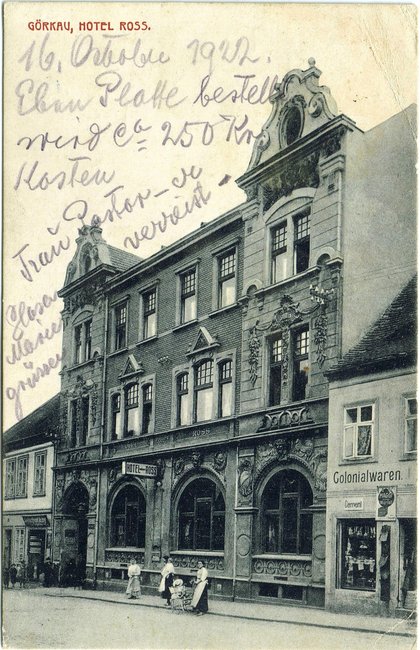 GÖRKAU, HOTEL ROSS.
16. Octobre 1922.
Eben Platte bestellt
wird ca 250 Kr.
Kosten
Frau Pastor
verreist.
Marie
grüssen
ROSS
HOTEL ROSS
Colonialwaren.